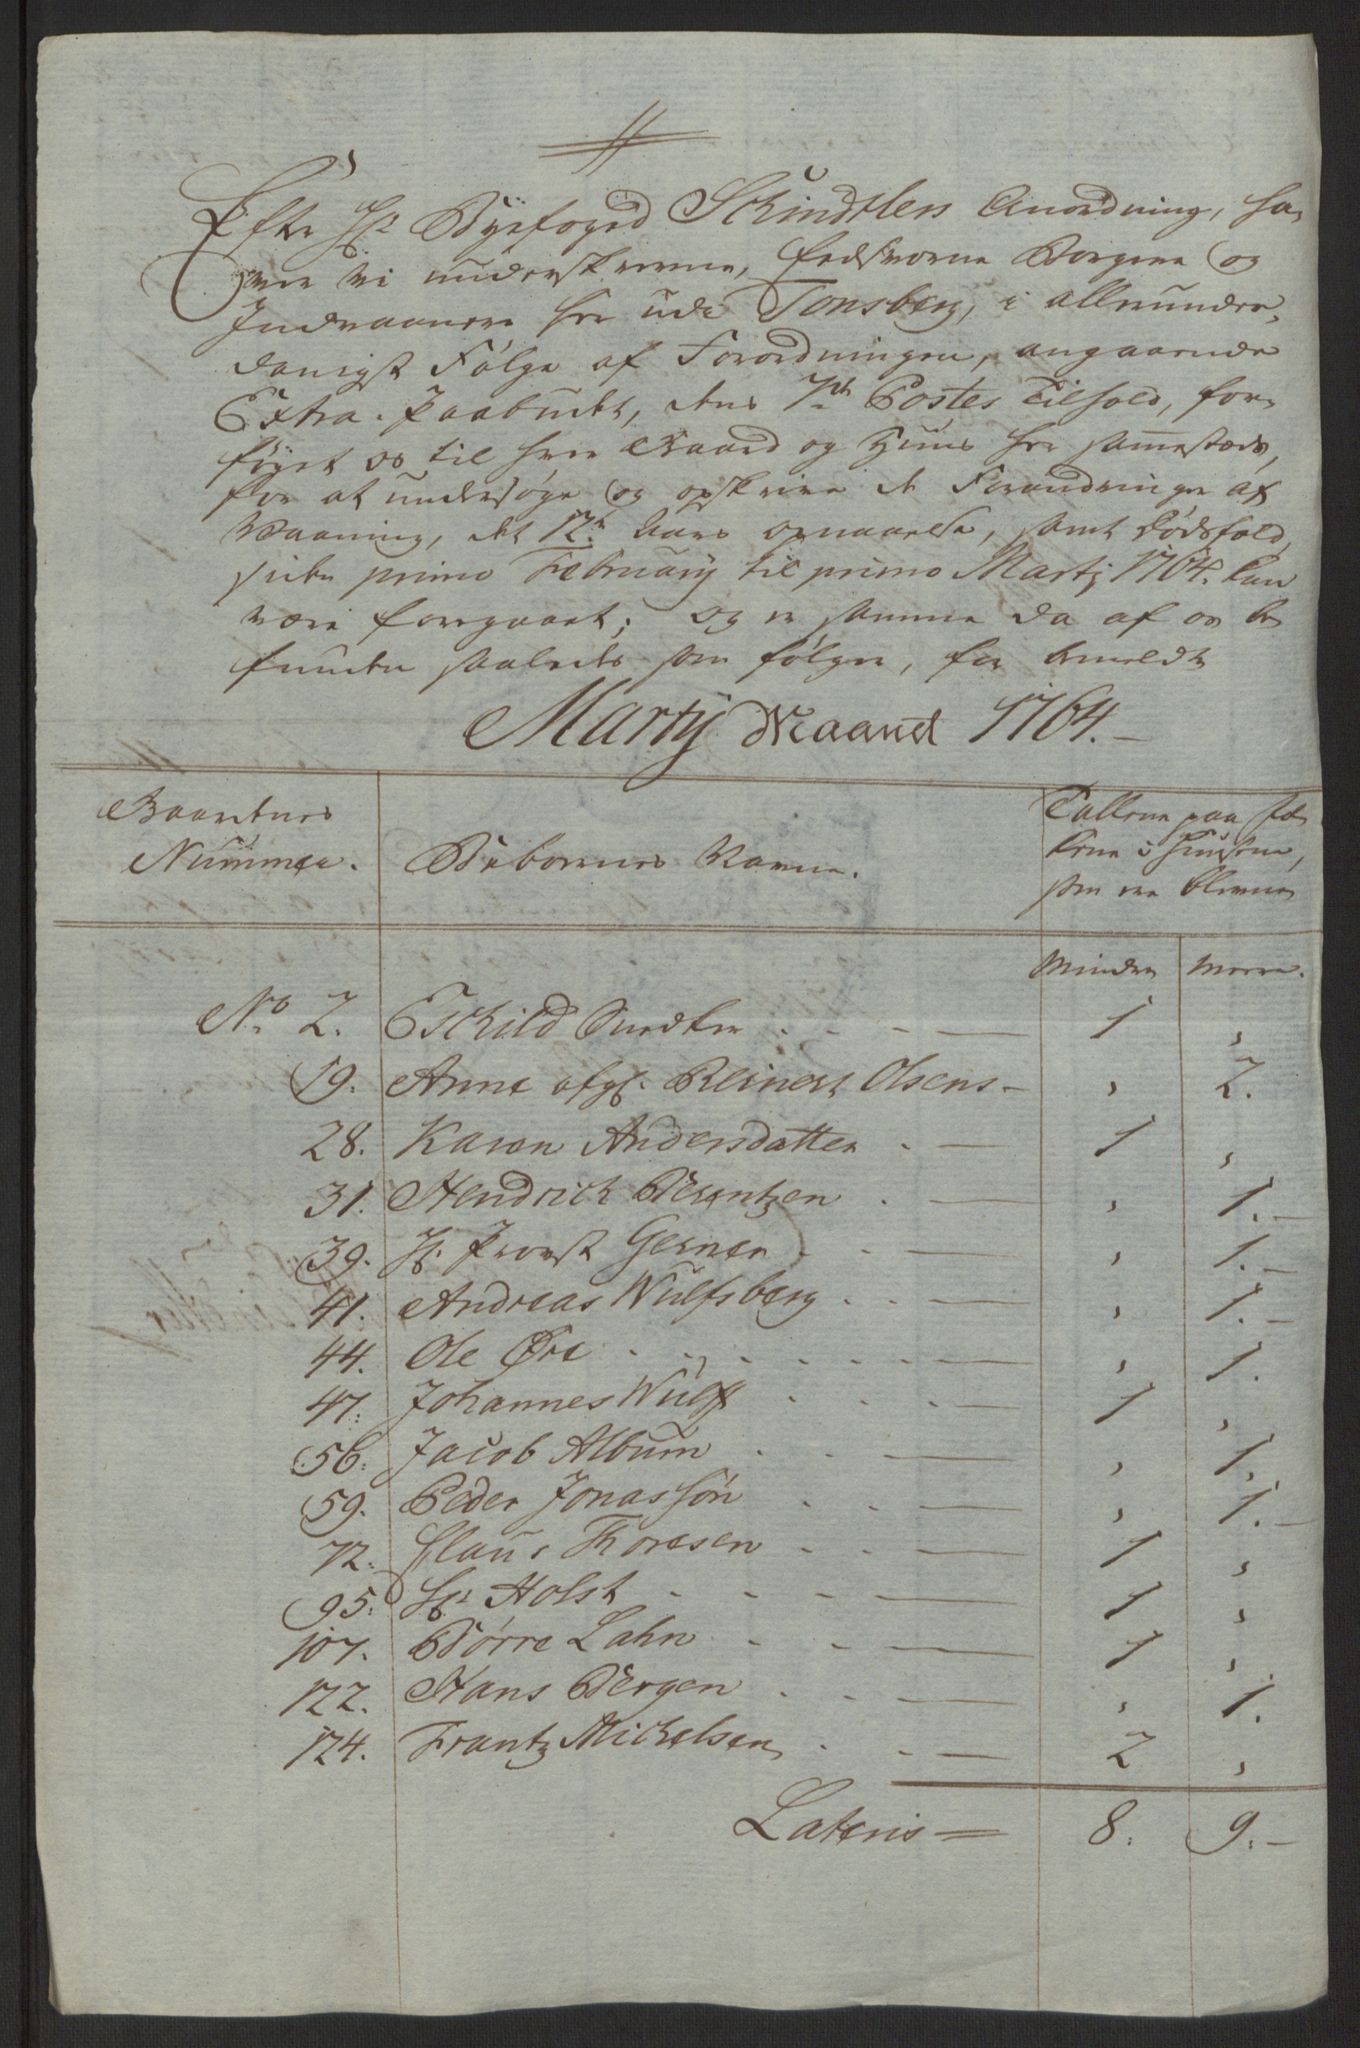 Efter Hr Byefoged Schindtlers Anordning, ha-
ver vi underskrevne, Eedsvorne Borgere og
Indvaanere her udi Tonsberg, i allerunder-
danigst Følge af Forordningen, angaaende
Extra-Paabudet, dens 7de Postes Tilhold, for-
føyet os til hver Gaard og Huus her sammesteds,
for at undersøge og opskrive de Forandringer af
Vaaning, det 12te Aars opnaaelse, samt Dødsfald,
siden primo February til primo Martj 1764 kan
være foregaaet; og er samme da af os be-
funden saaledes som følger, for bemeldte
Martij Maaned 1764.
Gaardenes Nummer. Beboernes Navne. Tallene paa Fol
kene i Huusene,
som ere blevne
Mindre Meere.
No 2. Eschild Suedker 1 „
19. Anne afg. Reinert Olsens „ 2.
28. Karen Andersdatter 1 „
31. Hendrich Berentzen „ 1.
39. Hr. Provst Gerner „ 1.
41. Andreas Wulfsberg „ 1.
44. Ole Øre „ 1.
47. Johannes Wulf 1 „
56. Jacob Album „ 1.
59. Peder Jonassøn „ 1.
72. Claus Thoresen 1 „
95. Hr Holst 1 „
107. Børre Lahn 1 „
122. Hans Bergen „ 1.
124. Frantz Michelsen 2 „
Lateris 8. 9.